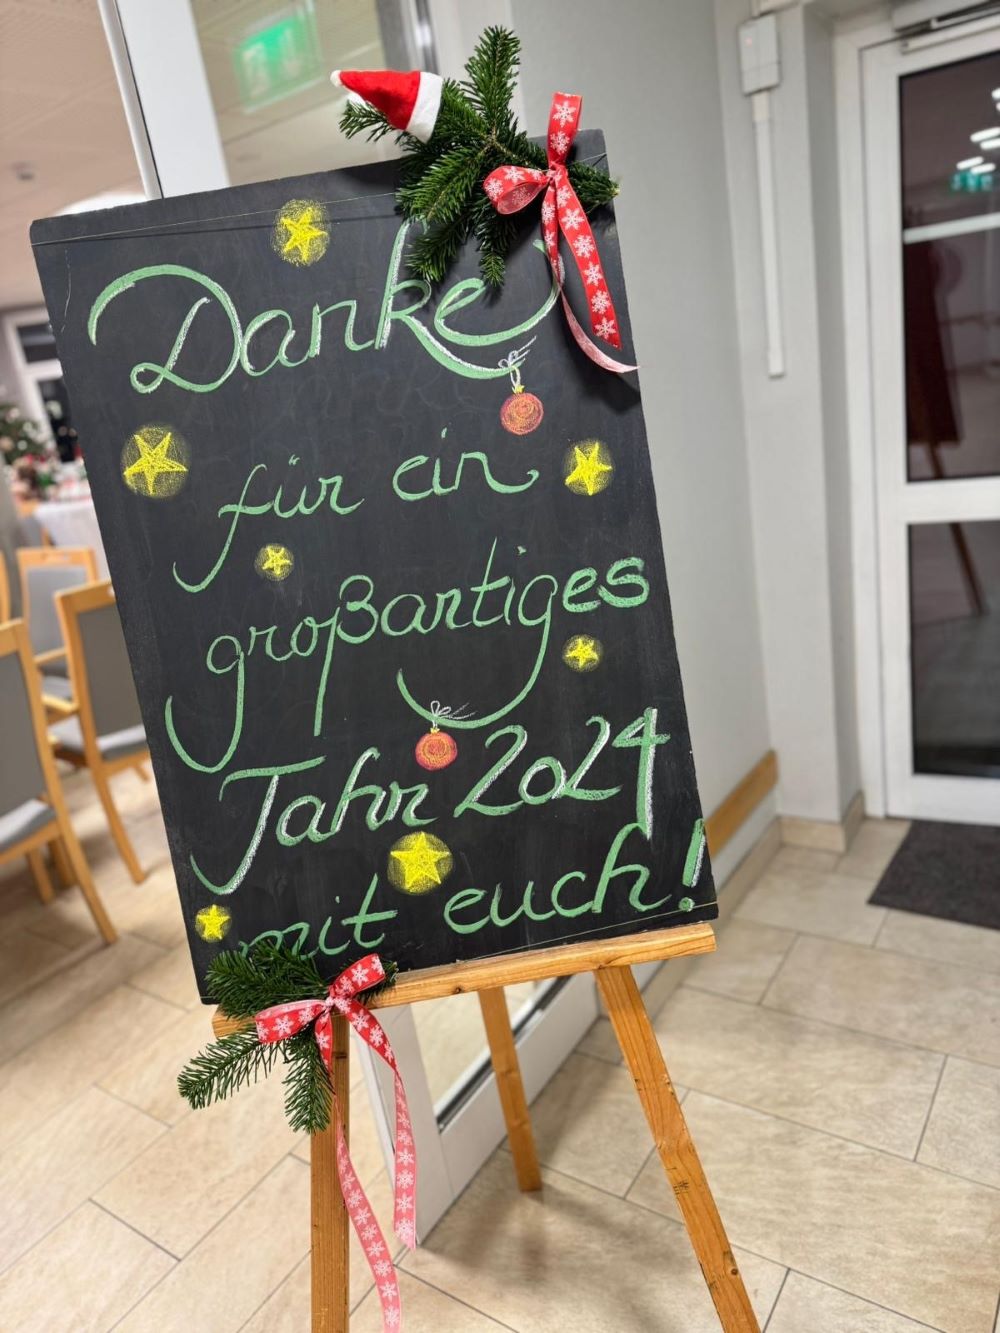 Danke
für ein
großartiges
Jahr 2024
mit euch!